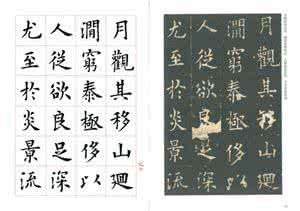 月觀其移山迴
澗窮泰極侈以
人從欲良足深
尤至於炎景流
月觀其移山迴
澗窮泰極侈以
人從欲良足深
尤至於炎景流